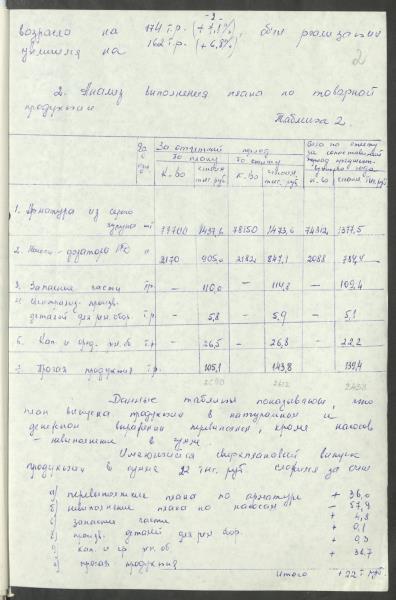 - 2 -
возросла на 174 т.р. (+7,1%), объем реализации
увеличился на 162 т.р. (+6,8%)
2
2. Анализ выполнения плана по товарной
продукции
Таблица 2.
За отчетный период
по плану по отчету
к-во стоим. тыс. руб. к-во стоим. тыс. руб. к-во
1. Арматура из серого чугуна шт 1437,6 78150 1473,6 74312 1377,5
2. Насосы-дозаторы НД " 2170 905,0 2182 847,1 2088
3. Запасные части т.р. — 110,0 — 114,8 — 109,4
деталей для рем. обор. т.р. — 5,8 — 5,9 — 5,1
Кап. и сред. т.р. — 26,5 — 26,8 — 22,2
Прочая продукция т.р. 105,1 143,8 139,4
2590 2612 2438
Данные таблицы показывают, что
план выпуска продукции в натуральном и
денежном выражении перевыполнен, кроме насосов
- невыполнение в сумме.
Имеющийся сверхплановый выпуск
продукции в сумме 22 тыс. руб. сложился за счет
а) перевыполнение плана по арматуре + 36,0
б) невыполнение плана по насосам - 57,9
в) запасные части + 4,8
произв. деталей для рем. обор. + 0,1
кап. и ср. + 0,3
прочая продукция + 38,7
Итого +22 т. руб.